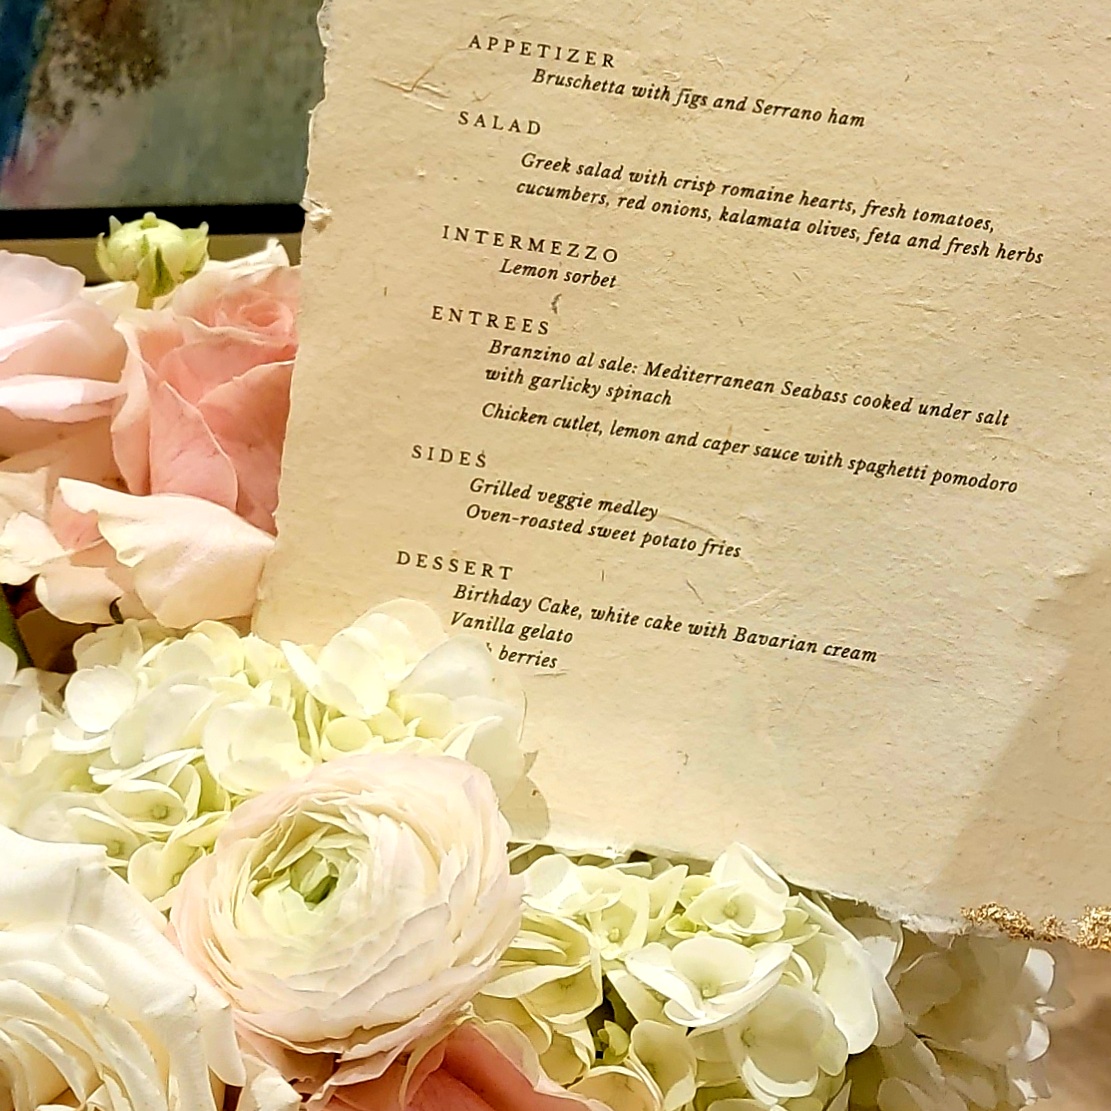 APPETIZER
Bruschetta with figs and Serrano ham
SALAD
Greek salad with crisp romaine hearts, fresh tomatoes,
cucumbers, red onions, kalamata olives, feta and fresh herbs
INTERMEZZO
Lemon sorbet
ENTREES
Branzino al sale: Mediterranean Seabass cooked under salt
with garlicky spinach
Chicken cutlet, lemon and caper sauce with spaghetti pomodoro
SIDES
Grilled veggie medley
Oven-roasted sweet potato fries
DESSERT
Birthday Cake, white cake with Bavarian cream
Vanilla gelato
berries